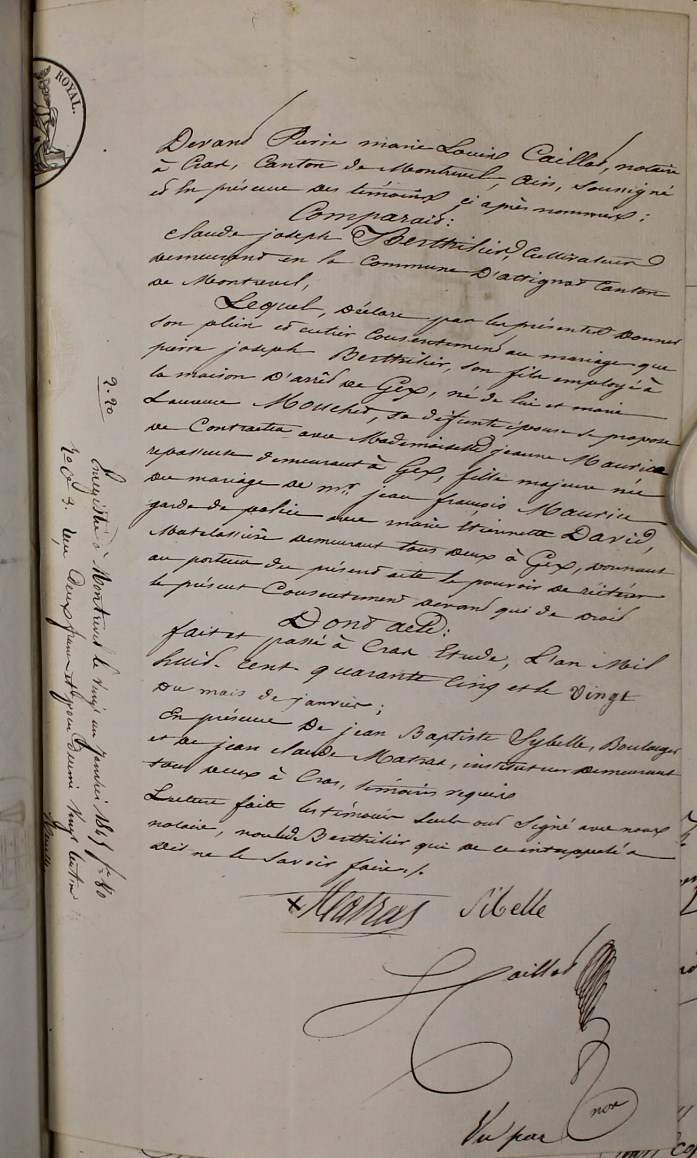 ROYAL.
Devant Pierre marie Louis Caillat, notaire
à Cras, Canton de Montrevel, Ain, soussigné
et En présence des témoins ci après nommés :
Comparait :
Claude joseph Berthilier, Cultivateur
demeurant en la Commune D'attignat Canton
de Montrevel,
Lequel, déclare par les présentes donner
son plein et entier Consentement au mariage que
pierre joseph Berthilier, son fils employé à
la maison D'arrêt de Gex, né de lui et marie
Laurence Mouchet, sa défunte épouse se propose
de Contracter avec Mademoiselle jeanne Maurice
repasseuse demeurant à Gex, fille majeure née
du mariage de mr. jean françois Maurice
garde de police avec marie Etiennette David,
Matelassière demeurant tous deux à Gex, donnant
au porteur du présent acte le pouvoir de réitérer
le présent Consentement devant qui de droit
Dont acte :
fait et passé à Cras Etude, L'an Mil
huit-cent quarante Cinq et le Vingt
du mois de janvier ;
En présence De jean Baptiste Sybelle, Boulanger
et de jean claude Matras, instituteur demeurant
tous deux à Cras, témoins requis
Lecture faite les témoins seuls ont signé avec nous
notaire, non led. Berthilier qui de ce interpellé a
dit ne le savoir faire ./.
x Matras Sibelle
Caillat
Vu par
nox
2. 20
Enregistré à Montrevel le vingt un janvier 1845 fo 80
Ro Ce 9. Reçu Deux francs et pour décime vingt centimes